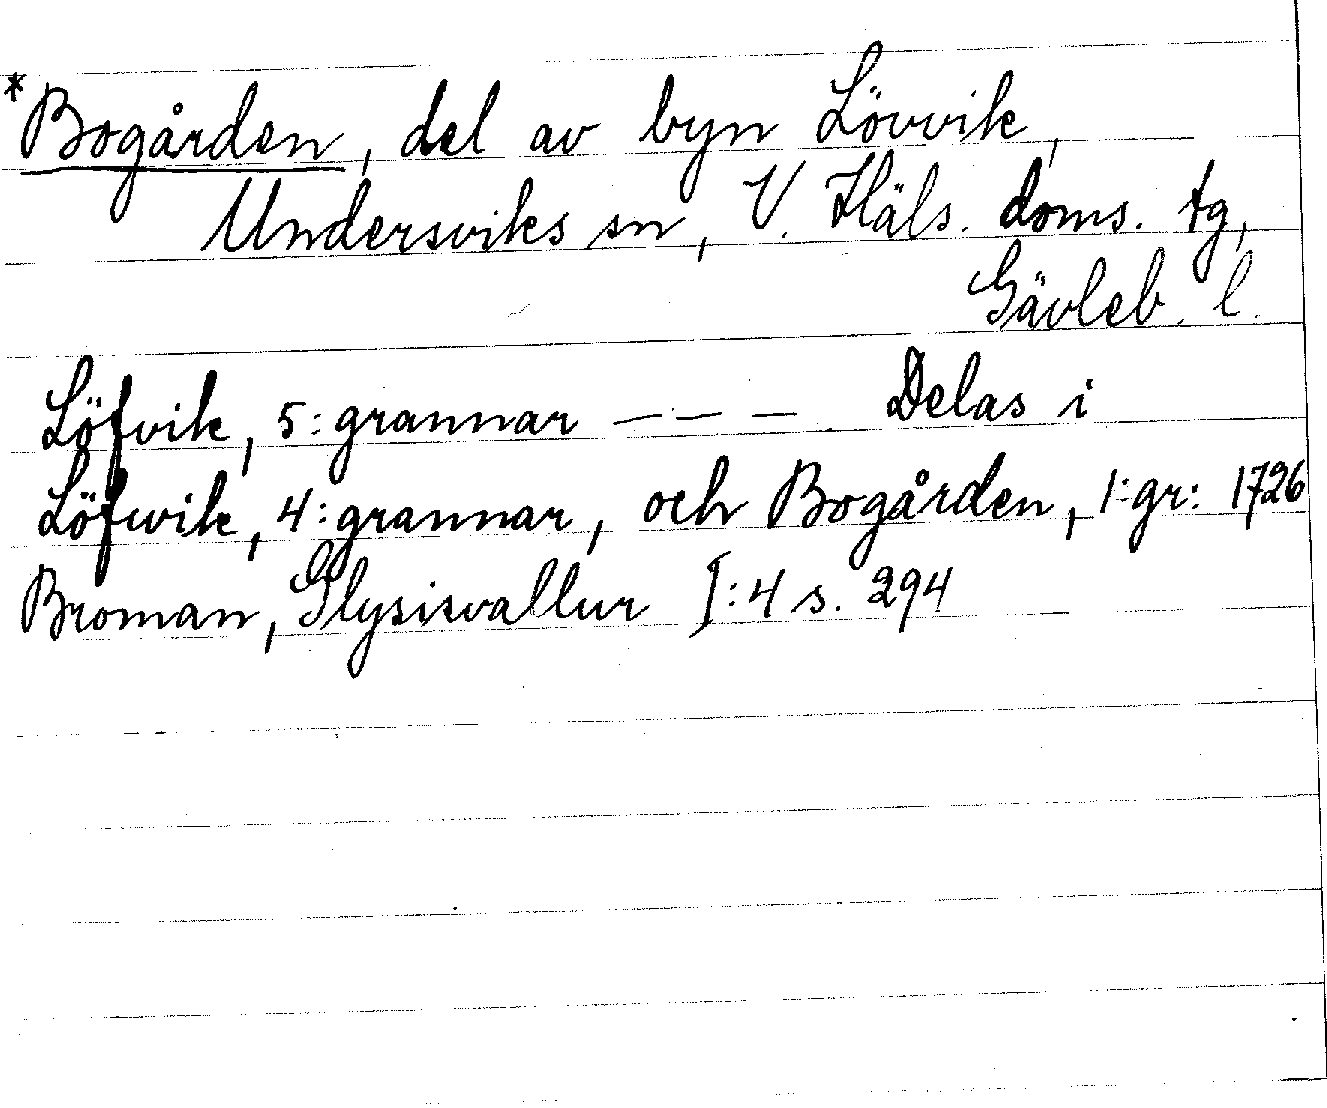 *Bogården, del av byn Lövvik,
Undersviks sn, V. Häls. doms. tg,
Gävleb. l.
Löfvik, 5: grannar — — — . Delas i
Löfwik, 4: grannar, och Bogården, 1: gr: 1726
Broman, Glysisvallur I:4 s. 294